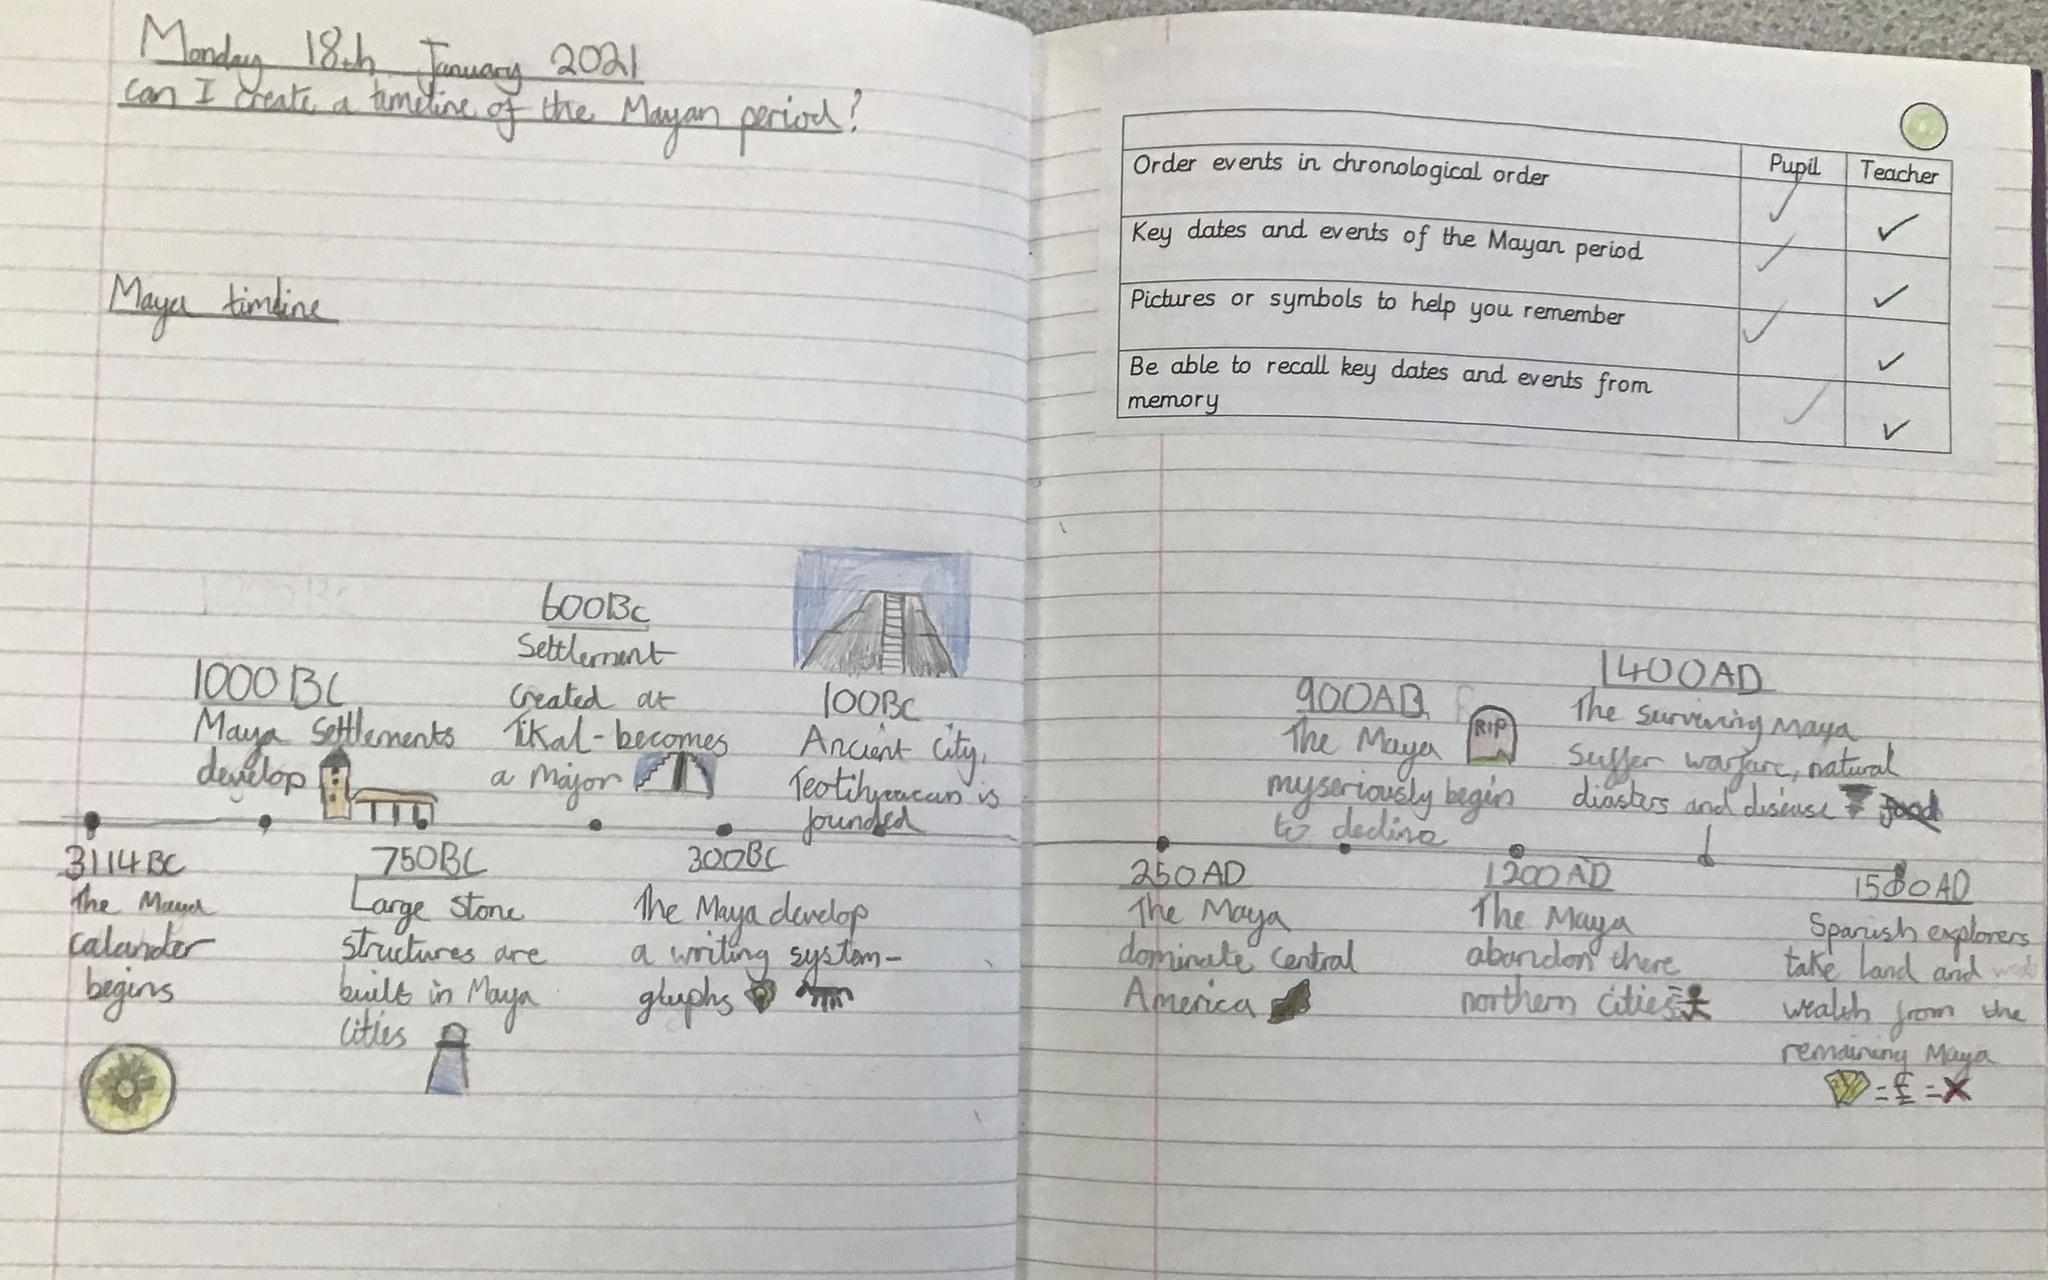 Monday 18th January 2021
can I create a timeline of the Mayan period?
Maya timeline
1000 BC
Maya settlements
develop
600BC
Settlement
created at
Tikal - becomes
a major
100BC
Ancient city,
Teotihuacan is
founded
3114 BC
The Maya
calander
begins
750BC
Large stone
structures are
built in Maya
cities
300BC
The Maya develop
a writing system -
glyphs
Pupil
Teacher
Order events in chronological order
Key dates and events of the Mayan period
Pictures or symbols to help you remember
Be able to recall key dates and events from
memory
900AD
The Maya
myseriously begin
to decline
RIP
1400AD
The surviving Maya
suffer warfare, natural
diasters and disease
250AD
The Maya
dominate central
America
1200AD
The Maya
abandon there
northern cities
1500AD
Spanish explorers
take land and
wealth from the
remaining Maya
= £ = X